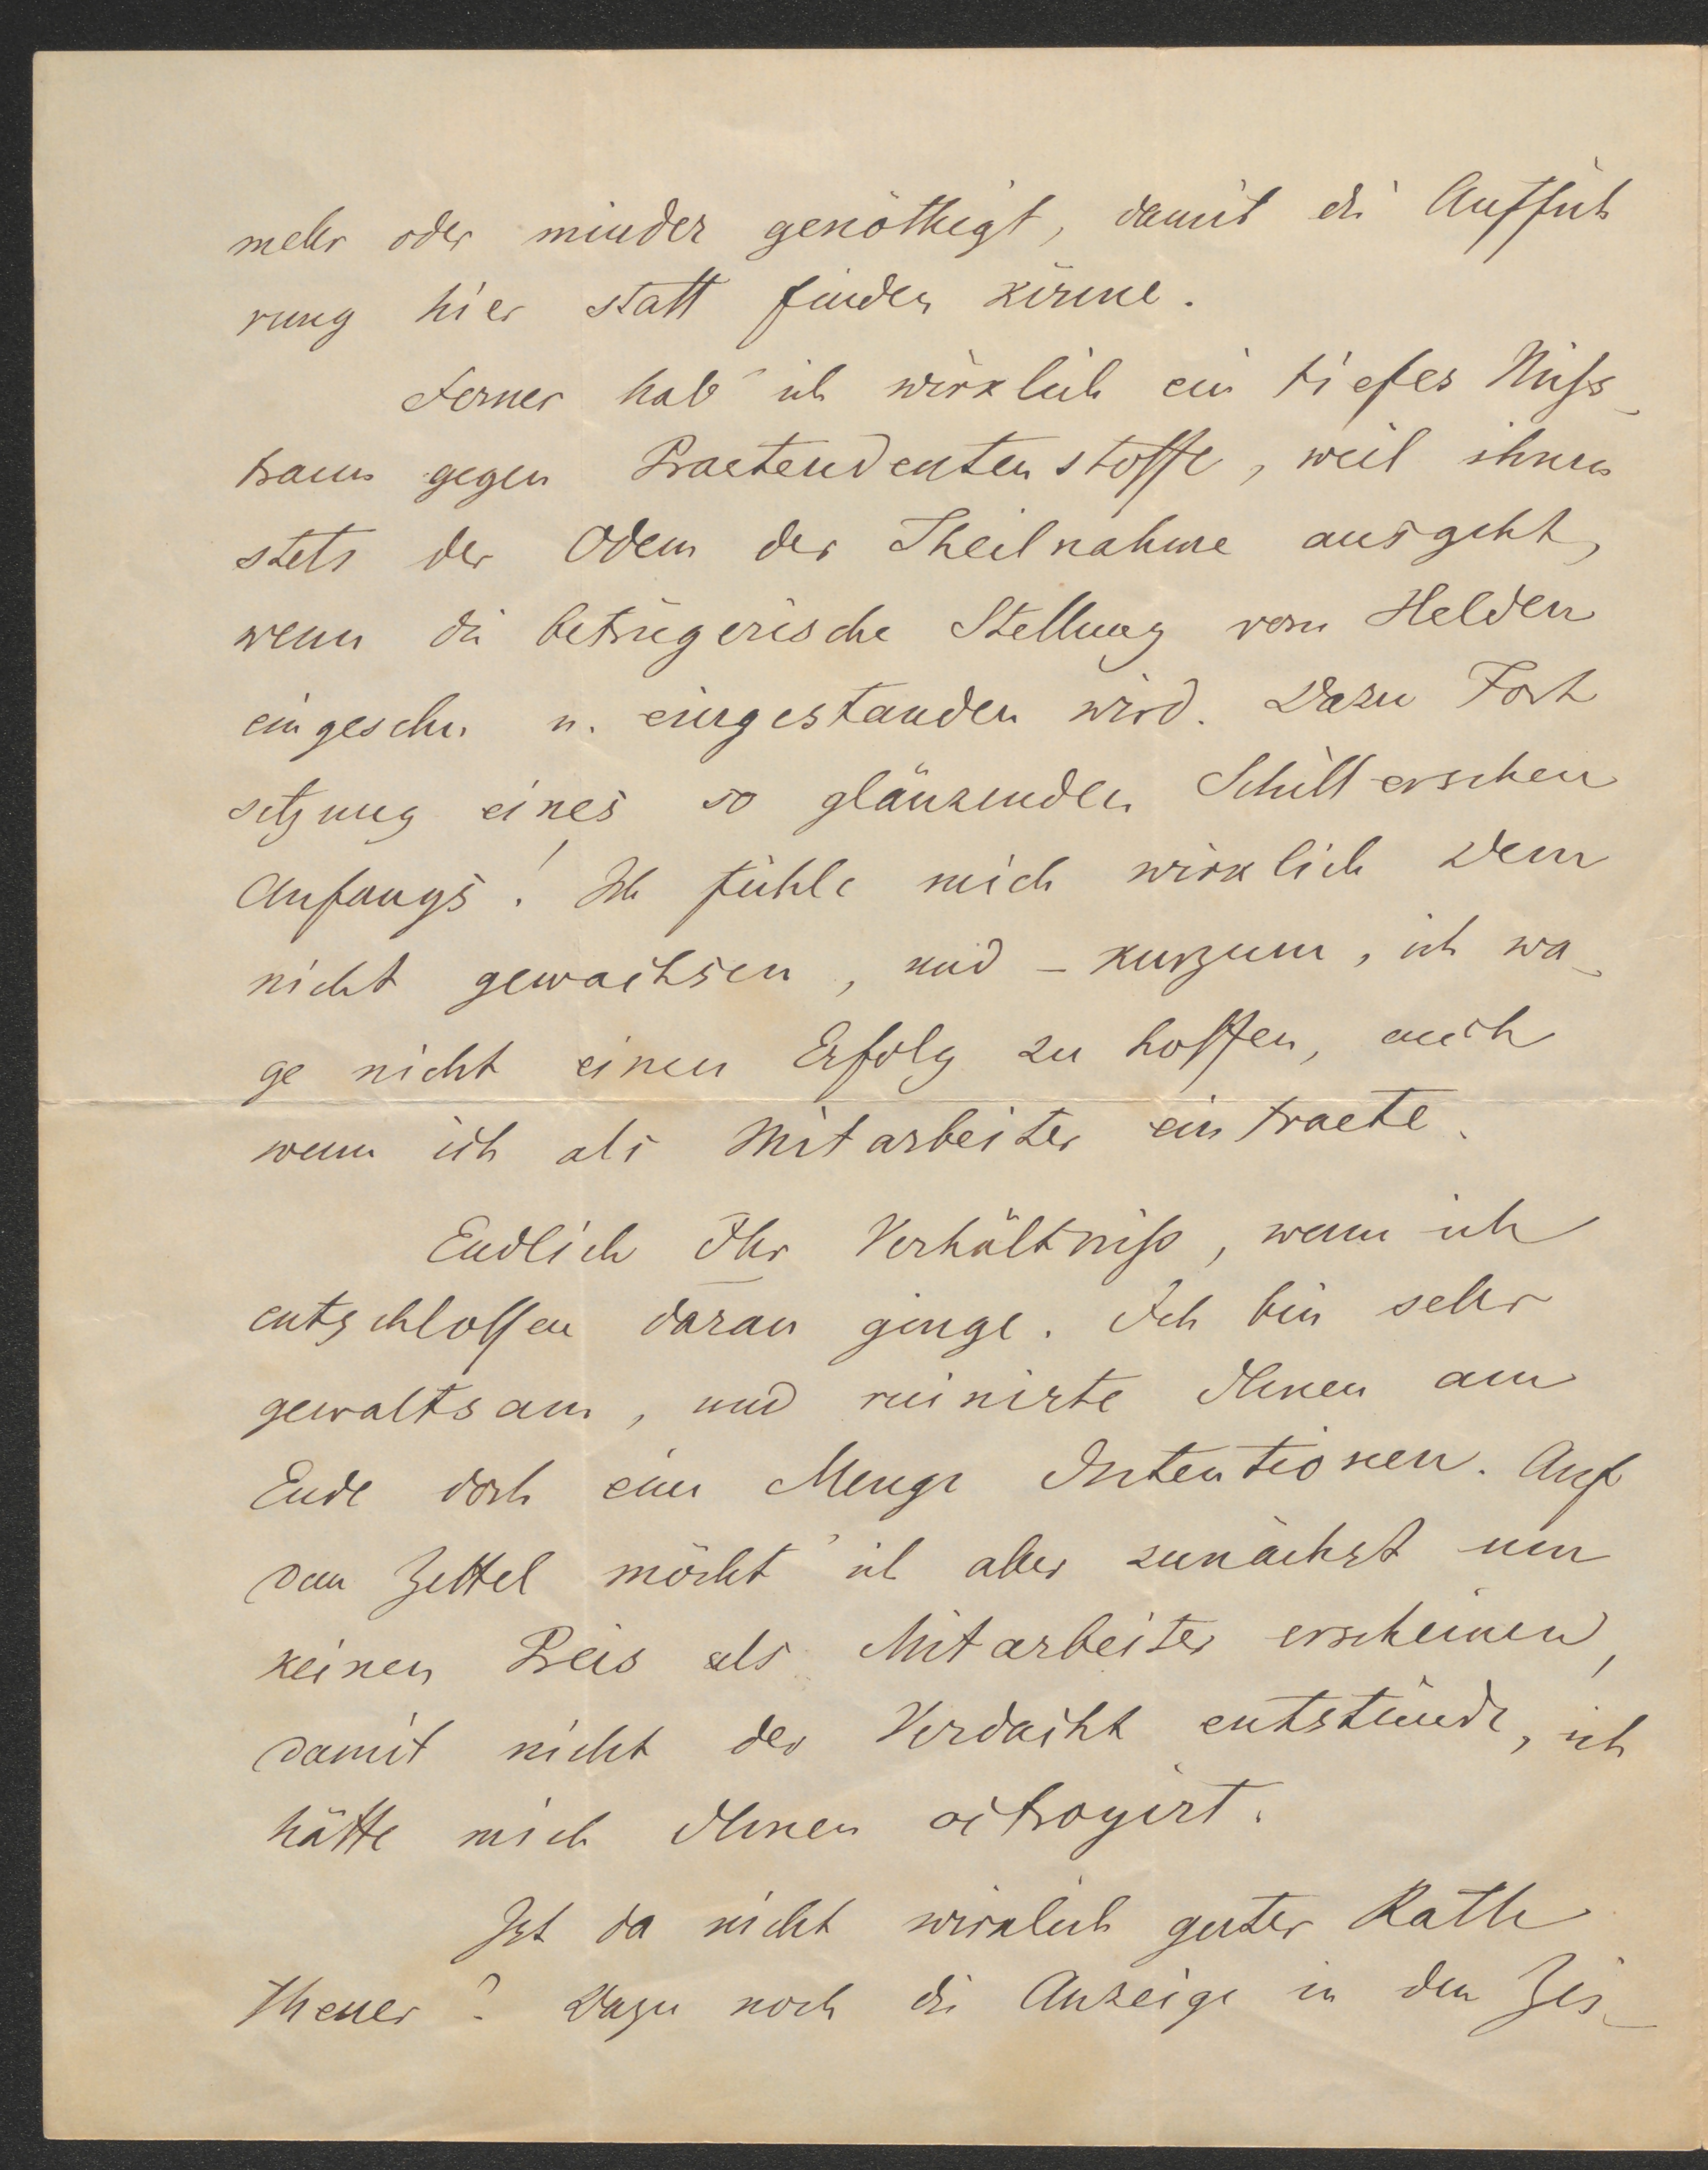 mehr oder minder genöthigt, damit die Auffüh
rung hier statt finden könne.
Ferner hab' ich wirklich ein tiefes Miß-
traun gegen Praetendentenstoffe, weil ihnen
stets der Odem der Theilnahme ausgeht,
wenn die betrügerische Stellung vom Helden
eingesehn u. eingestanden wird. Dazu Fort
setzung eines so glänzenden Schillerschen
Anfangs! Ich fühle mich wirklich dem
nicht gewachsen, und – kurzum, ich wa-
ge nicht einen Erfolg zu hoffen, auch
wenn ich als Mitarbeiter eintraete.
Endlich Ihr Verhältniß, wenn ich
entschlossen daran ginge. Ich bin sehr
gewaltsam, und ruinirte Ihnen am
Ende doch eine Menge Intentionen. Auf
dem Zettel möcht' ich aber zunächst um
keinen Preis als Mitarbeiter erscheinen,
damit nicht der Verdacht entstünde, ich
hätte mich Ihnen octroyirt.
Ist da nicht wirklich guter Rath
theuer? Dazu noch die Anzeige in den Zei-